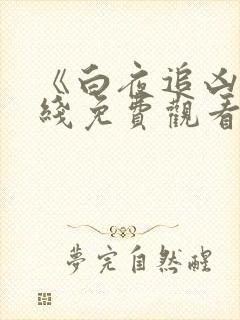 《白夜追凶
綫免費觀看
夢完自然醒